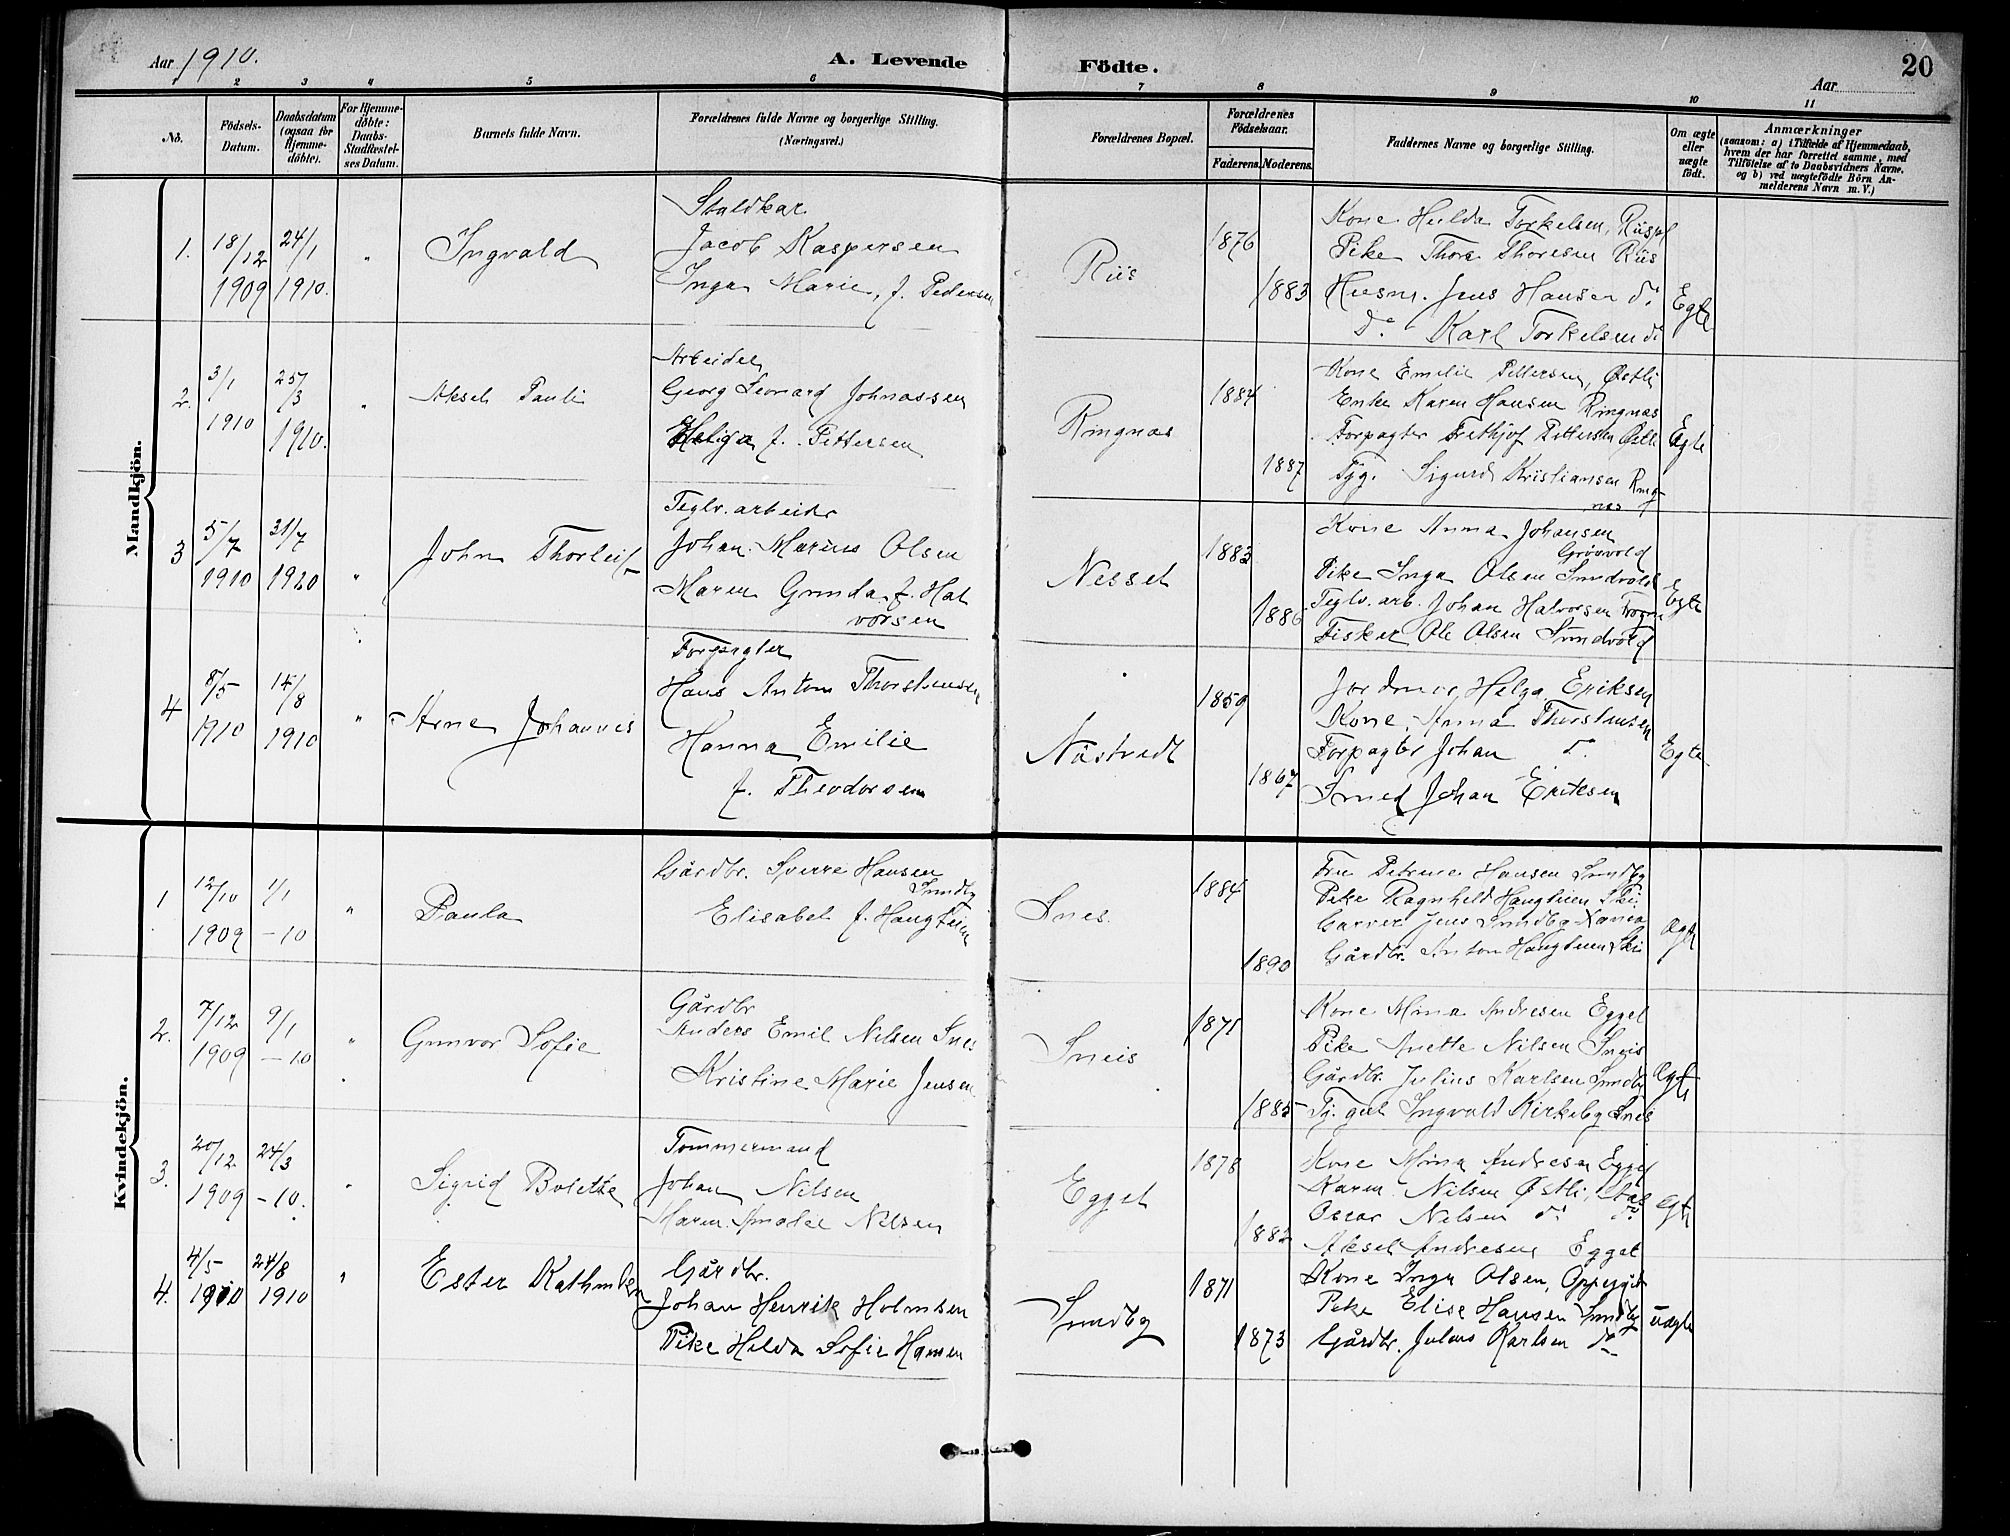 Aar 1910.
A. Levende Födte.
Aar
20
1 2 3 4 5 6 7 8 9 10 11
No.
Födsels-Datum.
Daabsdatum (ogsaa for Hjemme-döbte).
For Hjemme-döbte: Daabs-Stadfæstel-ses Datum.
Barnets fulde Navn.
Forældrenes fulde Navne og borgerlige Stilling.
(Næringsvei.)
Forældrenes Bopæl.
Forældrenes Födselsaar.
Faderens. Moderens.
Faddernes Navne og borgerlige Stilling.
Om ægte eller uægte födt.
Anmærkninger
(saasom: a) i Tilfælde af Hjemmedaab, hvem der har forrettet samme, med Tilföielse af to Daabsvidners Navne, og b) ved uægtefödte Börn An-melderens Navn m. V.)
Mandkjön.
1. 18/12 1909 24/1 1910. " Ingvald
Staldkar
Jacob Kaspersen
Inga Marie, f. Pedersen
Riis
1876
1883
Kone Hulda Torkelsen, Riispl
Pike Thora Thoresen Riis
Husm. Jens Hansen do
do Karl Torkelsen do
Egte
2. 3/1 1910 25/3 1910. " Aksel Pauli
Arbeider
Georg Leonard Johnassen
Helga f. Pettersen
Ringnes
1884
1887
Kone Emilie Pettersen, Østli
Enke Karen Hansen Ringnæs
Forpagter Frethjof Pettersen Østli
Tjg. Sigurd Kristiansen Ring-
nes
Egte
3 5/7 1910 31/7 1920 " John Thorleif
Teglv. arbeider
Johan Marius Olsen
Maren Gunda f. Hal
vorsen
Nesset
1883
1886
Kone Anna Johansen
Grøvold
Pike Inga Olsen Sundvold
Teglv. arb. Johan Halvorsen Frogn
Fisker Ole Olsen Sundvold
Egte
4 8/5 1910 14/8 1910 " Arne Johannes
Forpagter
Hans Anton Thorstensen
Hanna Emilie
f. Theodorsen
Nästvedt
1859
1867
Jordmor Helga Eriksen
Kone Anna Thorstensen
Forpagter Johan do
Smed Johan Eriksen
Egte
Kvindekjön.
1 12/10 1909 1/1 -10 " Paula
Gårdbr. Sverre Hansen
Sundby
Elisabet f. Haugteien
Snes
1884
1890
Fru Petrine Hansen Sundby
Pike Ragnhild Haugteien Ski
Garver Jens Sundby
Gårdbr. Anton Haugteien Ski
Ægte
2. 7/12 1909 9/1 -10 " Gunvor Sofie
Gårdbr
Anders Emil Nilsen Snes
Kristine Marie Jensen
Sneis
1871
1885
Kone Mina Andresen Egget
Pike Anette Nilsen Sneis
Gårdbr. Julius Karlsen Sundby
Tj. gut Ingvald Kirkeby Snes
Ægte
3. 20/12 1909 24/3 -10. " Sigrid Bolette
Tømmermand
Johan Nilsen
Maren Amalie Nilsen
Egget
1878
1882
Kone Mina Andresen Egget
Karen Nilsen Østli,
Oscar Nilsen do do
Aksel Andresen Egget
Ægte
4. 4/5 1910 24/8 1910 " Ester
Gårdbr.
Johan Henrik Holmsen
Pike Hilda Sofie Hansen
Sundby
1871
1873
Kone Inga Olsen,
Pike Elise Hansen Sundby
Gårdbr. Julius Karlsen do
uægte